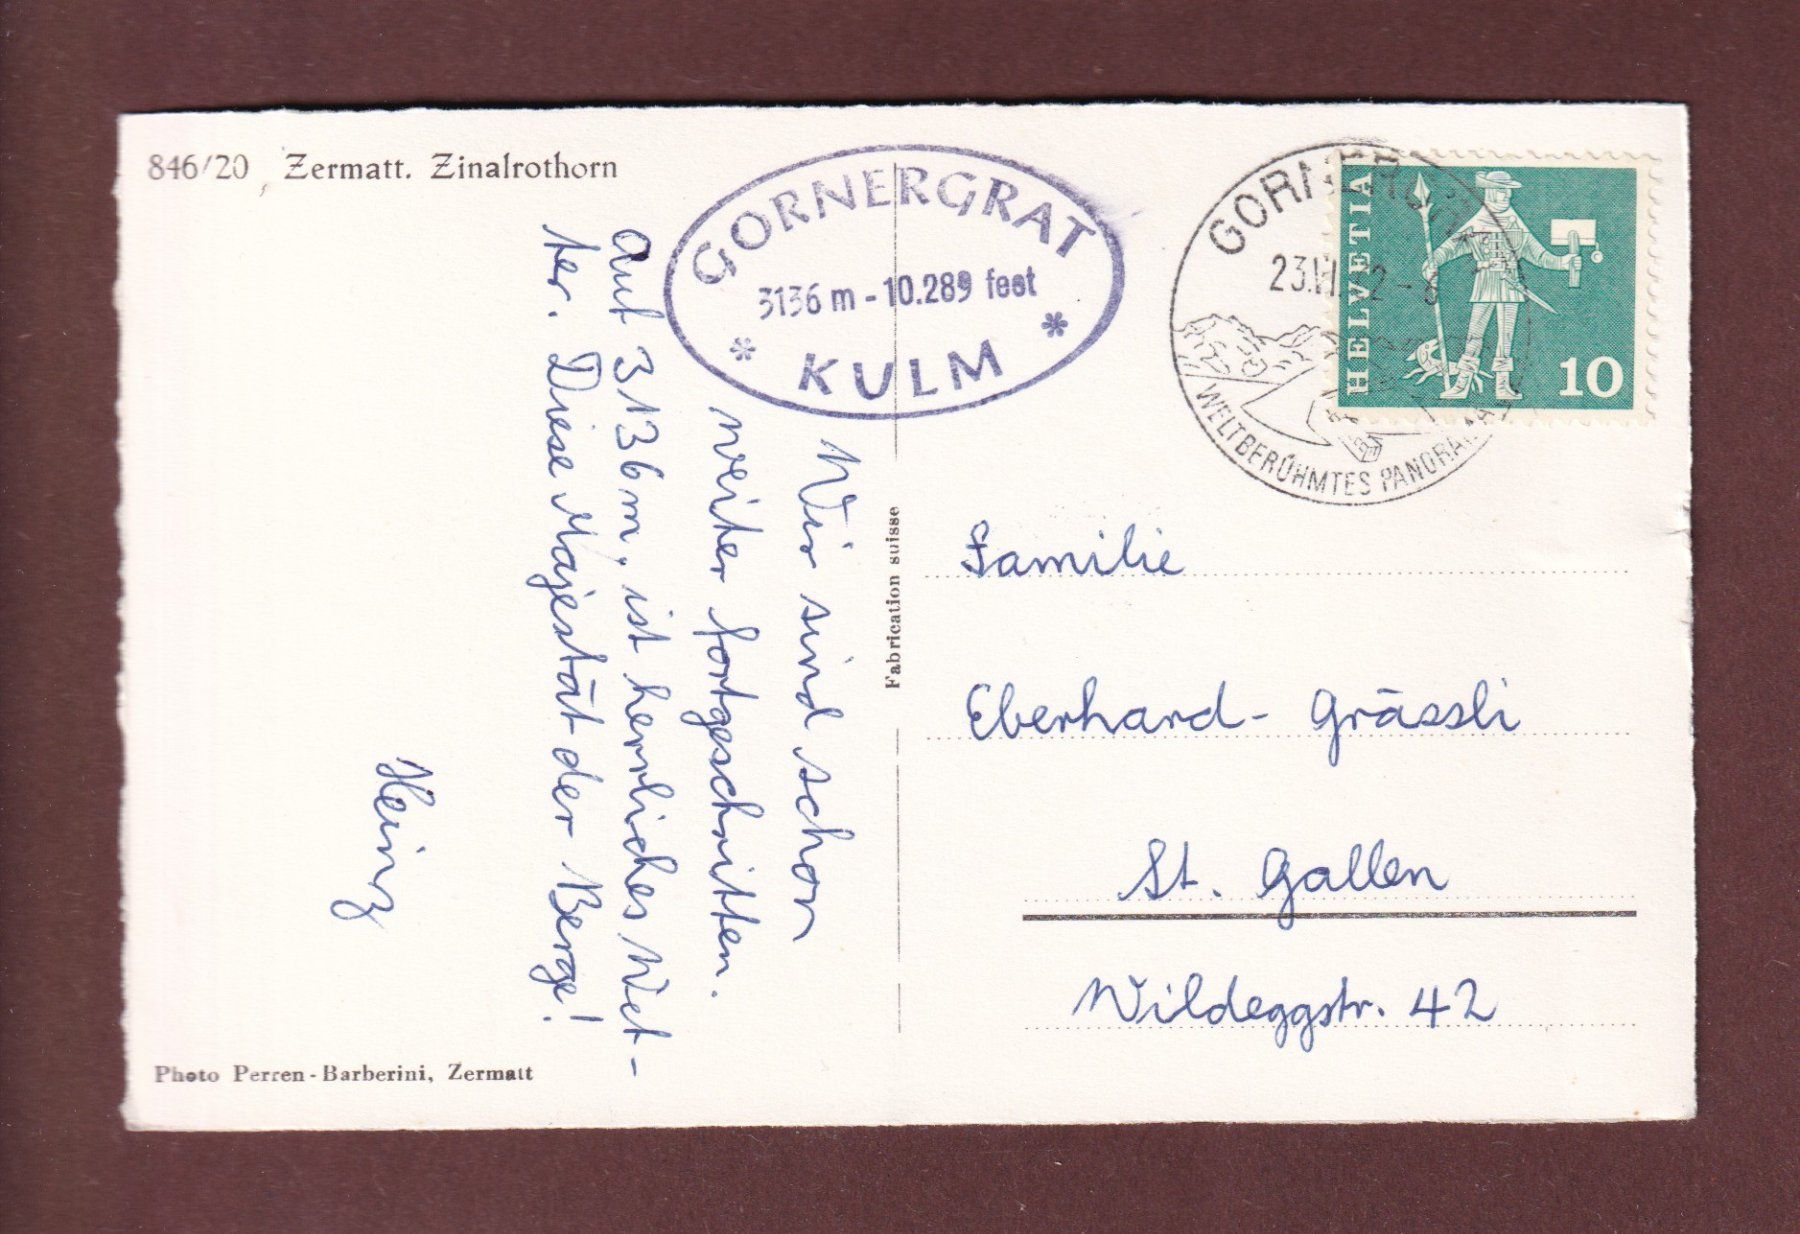 846/20 Zermatt. Zinalrothorn
GORNERGRAT
3136 m - 10.289 feet
* KULM *
GORNERGRAT
WELTBERÜHMTES PANORAMA
HELVETIA
10
Wir sind schon
weiter fortgeschritten.
Auf 3136 m, ist herrliches Wet-
ter. Diese Majestät der Berge!
Heinz
Fabrication suisse
Familie
Eberhard - Grässli
St. Gallen
Wildeggstr. 42
Photo Perren-Barberini, Zermatt